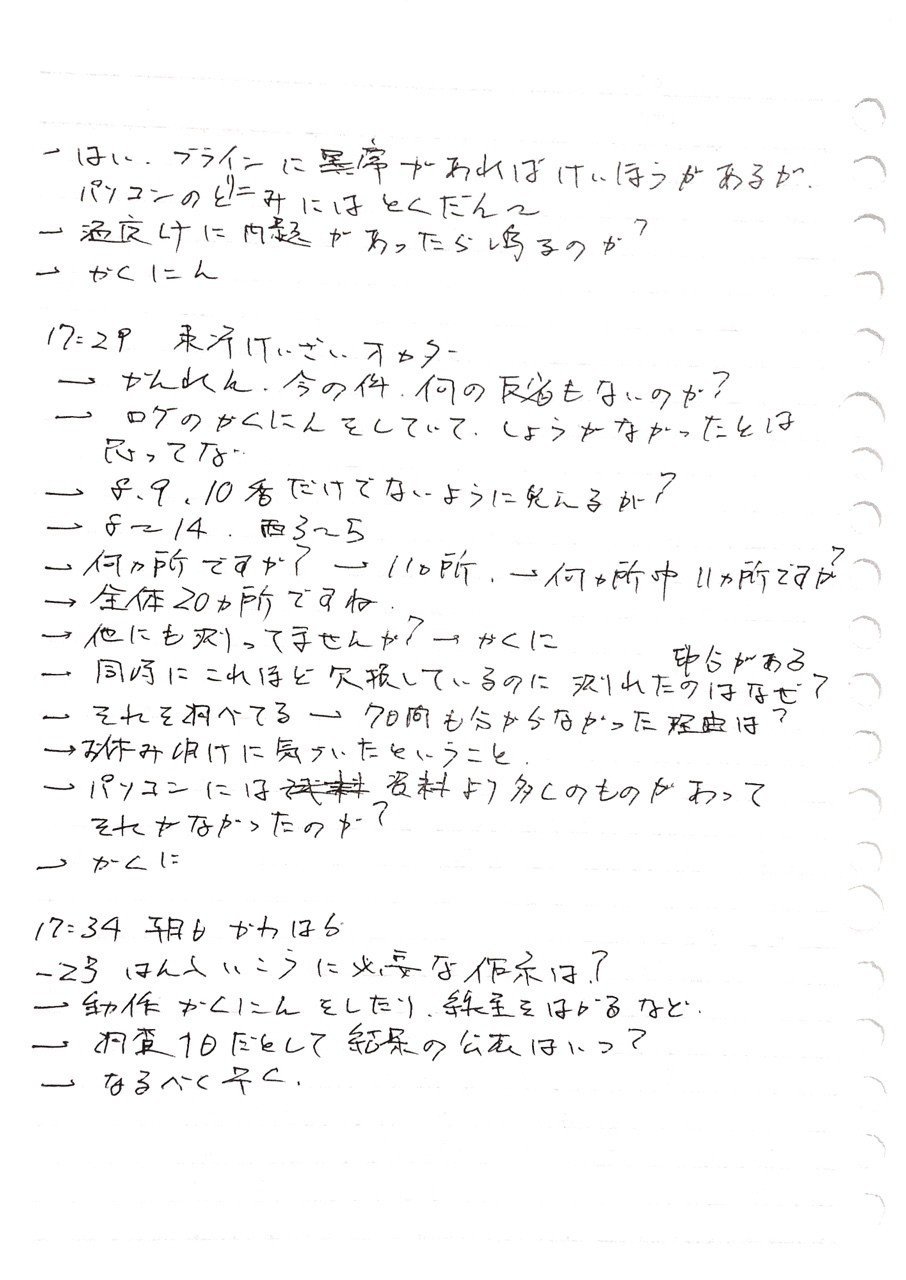 - はい. ブラインに異常があればけいほうがあるが.
パソコンの
- 温度計に問題があったら鳴るのか?
→ かくにん
17:29 東洋けいざい オカダ
→ かんれん. 今の件. 何の反省もないのか?
→ ロゲのかくにんをしていて. しょうがなかったとは
思ってな
→ 8、9、10番だけでないように見えるが?
→ 8〜14. 西3〜5
→ 何ヵ所ですか? → 11ヵ所. → 何ヵ所中11ヵ所ですか?
→ 全体20ヵ所ですね.
→ 他にも測ってませんか? → かくに
→ 同時にこれほど欠損しているのに 測れたのはなぜ?
部分がある
→ それを調べてる → 7日間も分からなかった理由は?
→ お休み明けに気づいたということ.
→ パソコンには 資料より多くのものがあって
それがなかったのか?
→ かくに
17:34 朝日 かわはら
-2号 はんてんいこうに必要な作業は?
→ 動作かくにんをしたり. 線量をはかるなど.
→ 調査 10日だとして 結果の公表はいつ?
→ なるべく早く.